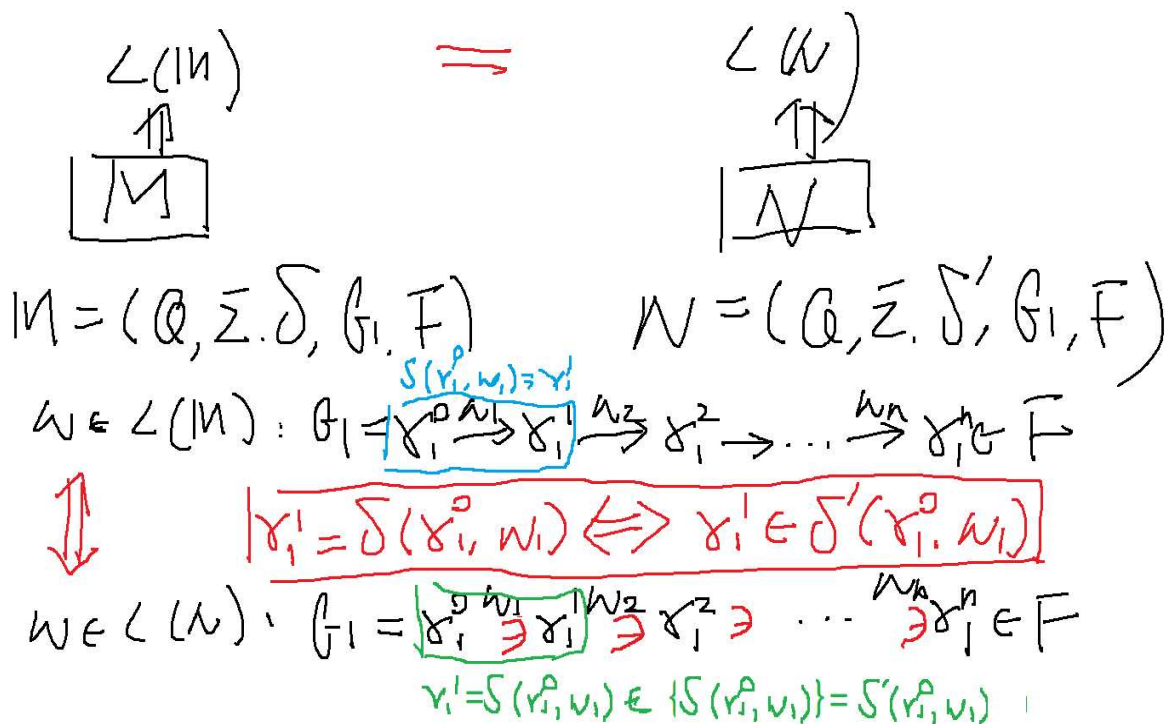 L(M) = L(N)
⇑ ⇑
M N
M = (Q, Σ, δ, q₁, F) N = (Q, Σ, δ', q₁, F)
δ(r₁⁰, w₁) = r₁¹
w ∈ L(M) : q₁ = r₁⁰ →^{w₁} r₁¹ →^{w₂} r₁² → ⋯ →^{wₙ} r₁ⁿ ∈ F
⇕ r₁¹ = δ(r₁⁰, w₁) ⟺ r₁¹ ∈ δ'(r₁⁰, w₁)
w ∈ L(N) : q₁ = r₁⁰ ∋^{w₁} r₁¹ ∋^{w₂} r₁² ∋ ⋯ ∋^{wₙ} r₁ⁿ ∈ F
r₁¹ = δ(r₁⁰, w₁) ∈ {δ(r₁⁰, w₁)} = δ'(r₁⁰, w₁)